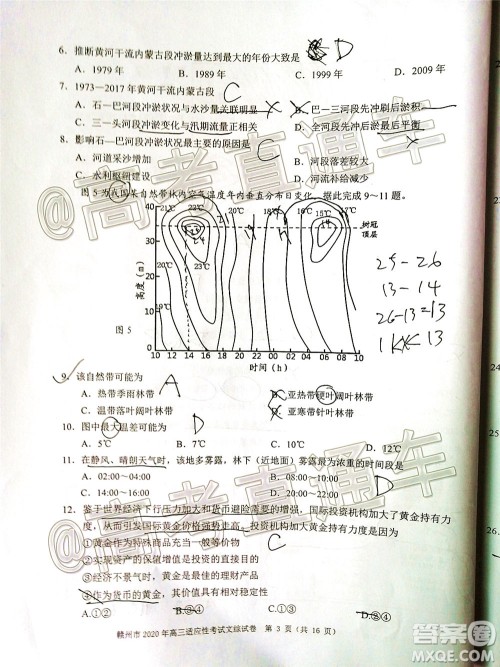 6．推断黄河干流内蒙古段冲淤量达到最大的年份大致是 D
A．1979 年 B．1989 年 C．1999 年 D．2009 年
7．1973—2017 年黄河干流内蒙古段 C
A．石—巴河段冲淤状况与水沙量关联明显 B．巴—三河段先冲刷后淤积
C．三—头河段冲淤变化与汛期流量正相关 D．全河段先冲后淤最后平衡
8．影响石—巴河段冲淤状况最主要的原因是 C
A．河道采沙增加 B．河段落差较大
C．水利枢纽建设 D．河流补给减少
图 5 为我国某自然带林内空气温度年内垂直分布日变化。据此完成 9～11 题。
高度（m）
40 35 30 25 20 15 10 5 0
21℃ 23℃ 20℃ 19℃ 18℃ 17℃ 16℃ 15℃ 17℃
树冠顶层
22℃ 23℃ 19℃
图 5
10 12 14 16 18 20 22 00 02 04 06 08 10
时间（h）
25－26
13－14
26－13＝13
13
9．该自然带可能为 A
A．热带季雨林带 B．亚热带硬叶阔叶林带
C．温带落叶阔叶林带 D．亚寒带针叶林带
10．图中最大温差可能为 D
A．5℃ B．7℃ C．10℃ D．12℃
11．在静风、晴朗天气时，该地多雾露。林下（近地面）雾露最为浓重的时间段是
A．02:00～04:00 B．08:00～10:00
C．14:00～16:00 D．20:00～22:00
12．鉴于世界经济下行压力加大和货币避险需要的增强，国际投资机构加大了黄金持有力
度，从而引发国际黄金价格强势走高。投资机构加大黄金持有力度是因为
①黄金作为特殊商品充当一般等价物 C
②实现资产的保值增值是投资的直接目的
③经济不景气时，黄金是最佳的理财产品
④作为货币的黄金，
A.①② B.②③ C.①③ D.②④
赣州市 2020 年高三适应性考试文综试卷 第 3 页（共 16 页）
@高考直通车
@高考直通车
答案圈
MXQE.COM